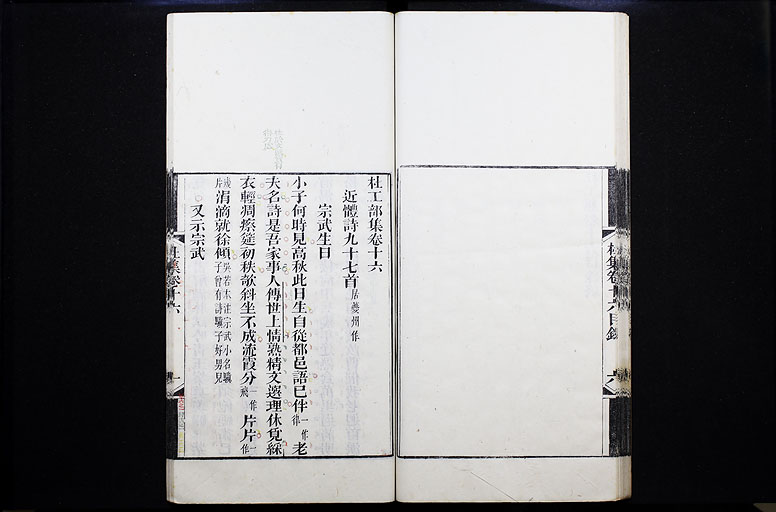 杜集卷十六目錄
六
杜工部集卷十六
近體詩九十七首居夔州作
宗武生日
小子何時見高秋此日生自從都邑語已伴一作律老
夫名詩是吾家事人傳世上情熟精文選理休覓綵
衣輕凋瘵筵初秩欹斜坐不成流霞分一作飛片片一作
幾片涓滴就徐傾吳若本注宗武小名驥子曾有詩驥子好男兒
又示宗武
杜集卷十六
一